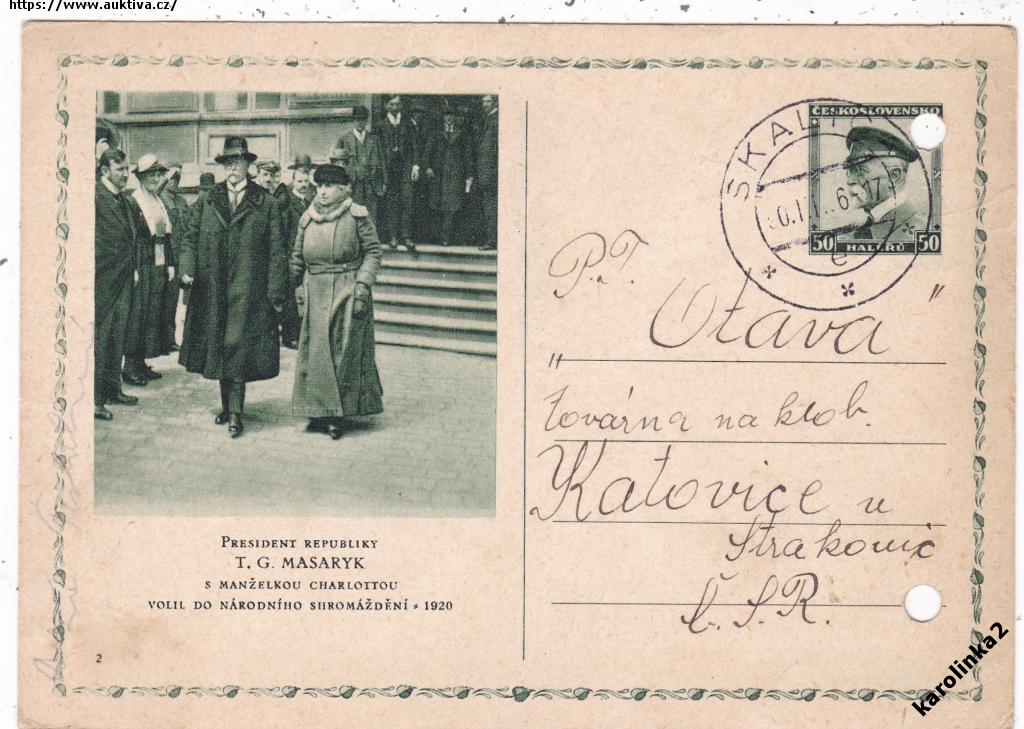 https://www.auktiva.cz/
ČESKOSLOVENSKO
50 HALÉŘŮ 50
SKALI
6-17
e
P.T.
„Otava"
továrna na klob.
Katovice u
Strakonic
Č.S.R.
PRESIDENT REPUBLIKY
T. G. MASARYK
S MANŽELKOU CHARLOTTOU
VOLIL DO NÁRODNÍHO SHROMÁŽDĚNÍ = 1920
2
karolinka2